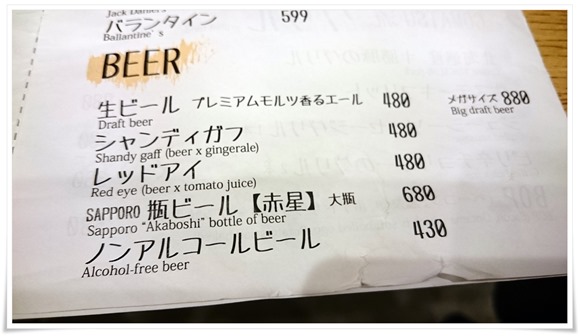 Jack Daniel's
バランタイン 599
Ballantine`s
BEER
生ビール プレミアムモルツ香るエール 480 メガサイズ 880
Draft beer Big draft beer
シャンディガフ 480
Shandy gaff (beer x gingerale)
レッドアイ 480
Red eye (beer x tomato juice)
SAPPORO 瓶ビール【赤星】 大瓶 680
Sapporo "Akaboshi" bottle of beer
ノンアルコールビール 430
Alcohol-free beer